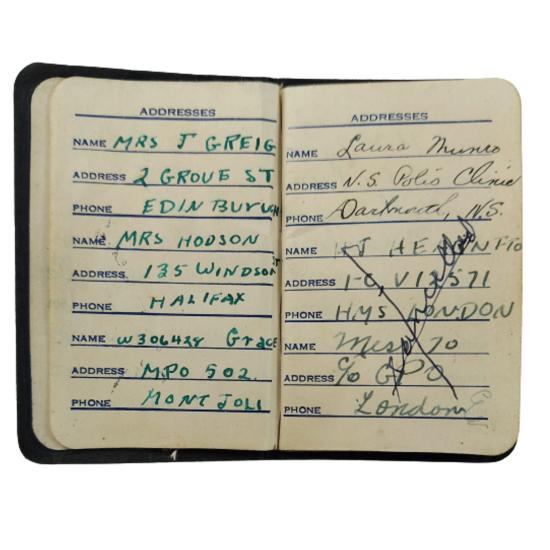 ADDRESSES
NAME MRS J GREIG
ADDRESS 2 GROVE ST
PHONE EDINBURGH
NAME MRS HODSON
ADDRESS 135 WINDSOR ST
PHONE HALIFAX
NAME W306424 Grace
ADDRESS MPO 502.
PHONE MONT JOLI
ADDRESSES
NAME Laura Munro
ADDRESS N.S. Polio Clinic
PHONE Dartmouth, N.S.
NAME
ADDRESS 1-C, V12571
PHONE HMS LONDON
NAME Mess 70
ADDRESS c/o GPO
PHONE London
Cancelled